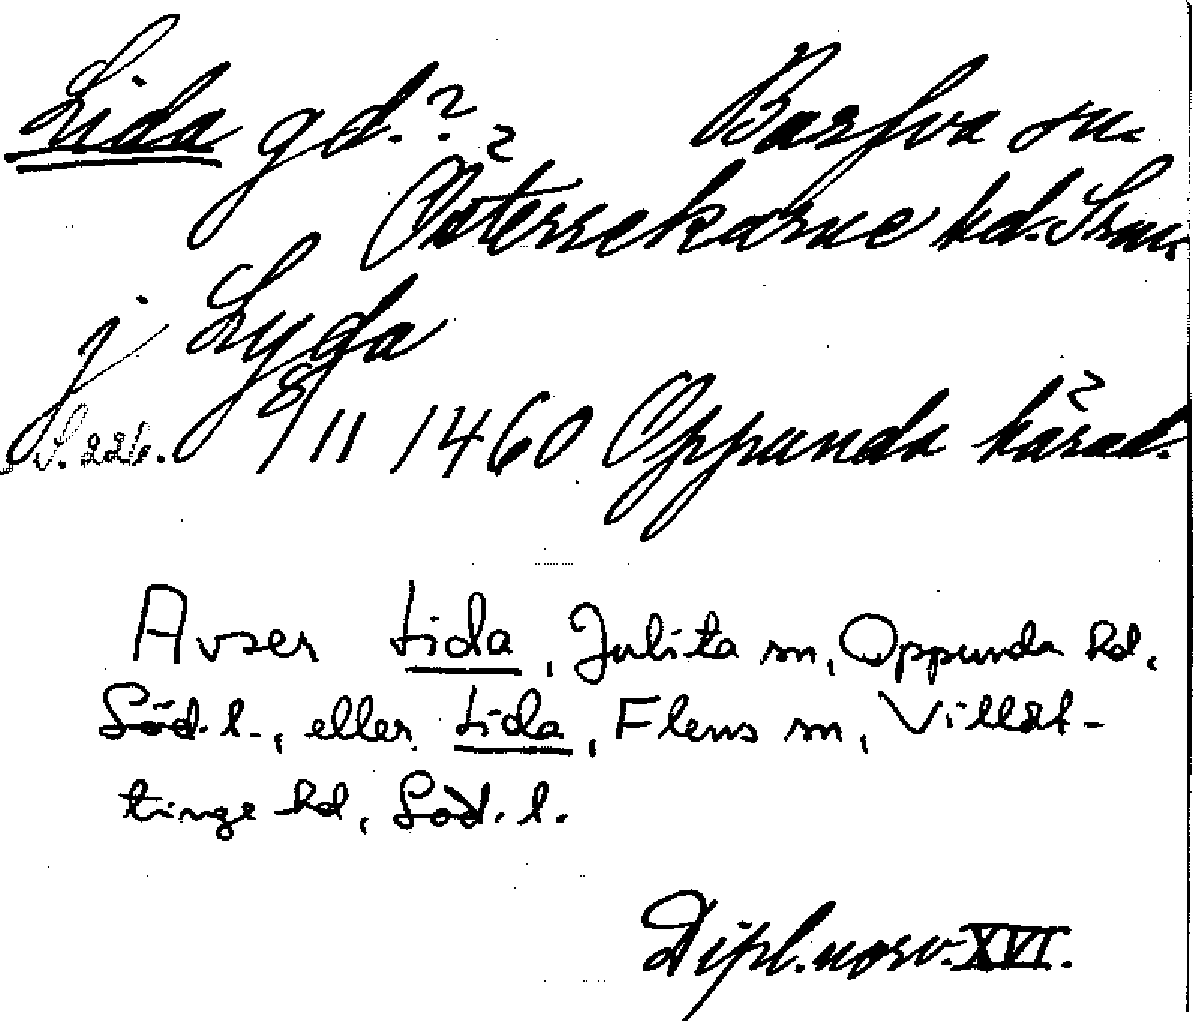 Lida gd.? Barfva sn.
? Österrekarne hd. Srm.
j Lyda
S. 226. 8/11 1460 Oppunda härad.
Avser Lida, Julita sn, Oppunda hd,
Söd. l., eller Lida, Flens sn, Villåt-
tinge hd, Söd. l.
Dipl. norv. XVI.